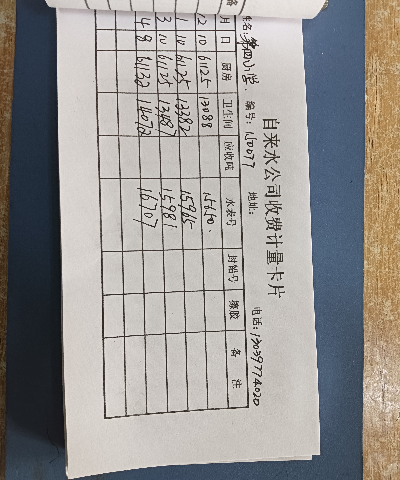 自来水公司收费计量卡片
姓名:第四小学. 编号:150077 地址: 电话:13039774020
月 日 厨房 卫生间 应收吨 水表号 封铅号 橡胶 备 注
12 10 61125 13088 15650.
1 10 61125 13382 15965
3 10 61125 13487 15981
4 8 61132 14072 16707